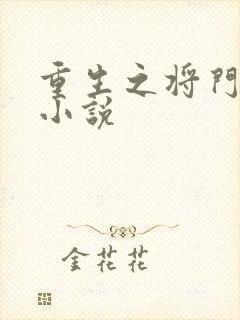 重生之将門
小説
金花花